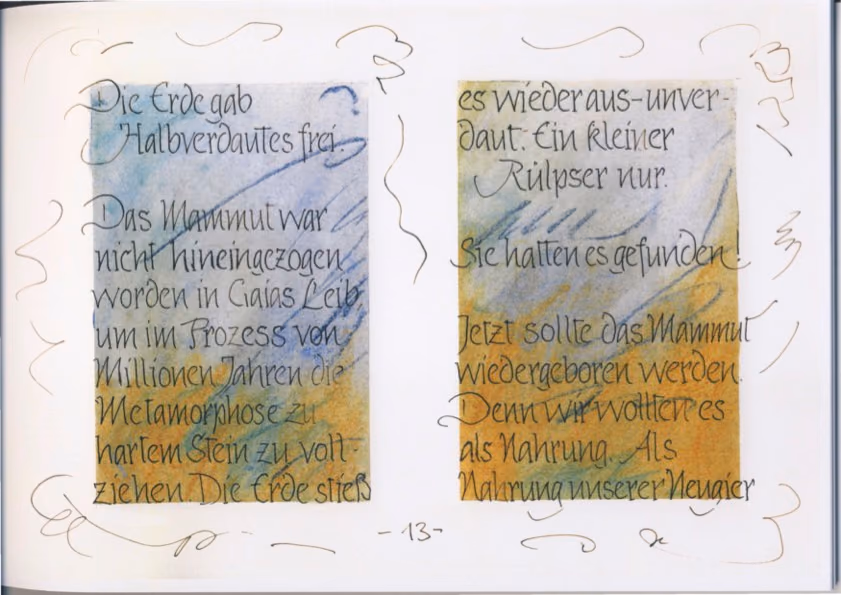 Die Erde gab
Halbverdautes frei.
Das Mammut war
nicht hineingezogen
worden in Gaias Leib,
um im Prozess von
Millionen Jahren die
Metamorphose zu
hartem Stein zu voll-
ziehen Die Erde stieß
es wieder aus-unver-
daut. Ein kleiner
Rülpser nur.
Sie hatten es gefunden!
Jetzt sollte das Mammut
wiedergeboren werden.
Denn wir wollten es
als Nahrung. Als
Nahrung unserer Neugier
-13-